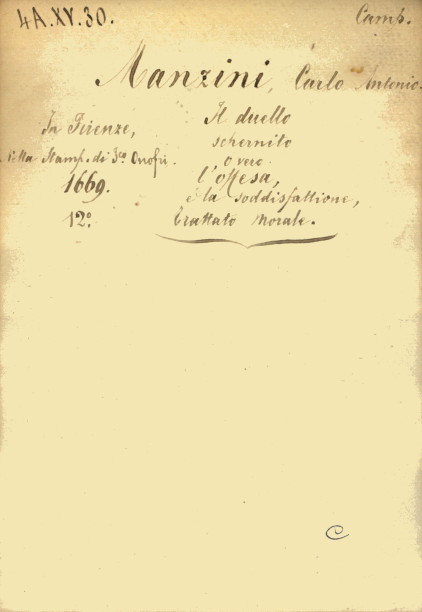 4A.XV.30. Camp.
Manzini, Carlo Antonio.
In Firenze,
nella Stamp. di Fco Onofri.
1669.
12o.
Il duello
schernito
overo
l'offesa,
e la soddisfattione,
trattato morale.
C